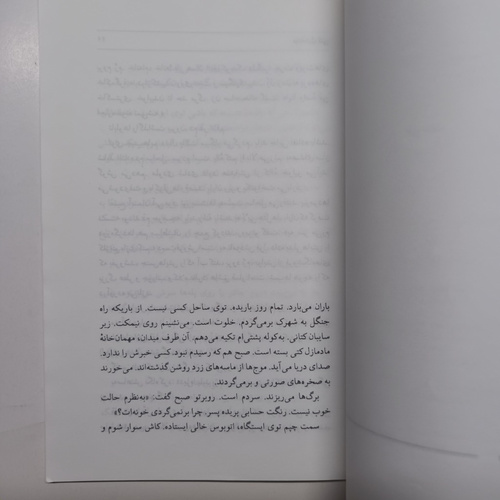 باران می‌بارد. تمام روز باریده. توی ساحل کسی نیست. از باریکه راه
جنگل به شهرک برمی‌گردم. خلوت است. می‌نشینم روی نیمکت، زیر
سایبان کتانی. به کوله پشتی‌ام تکیه می‌دهم. آن طرف میدان، مهمان‌خانهٔ
مادمازل کتی بسته است. صبح هم که رسیدم نبود. کسی خبرش را ندارد.
صدای دریا می‌آید. موج‌ها از ماسه‌های زرد روشن گذشته‌اند. می‌خورند
به صخره‌های صورتی و برمی‌گردند.
برگ‌ها می‌ریزند. سردم است. روبرتو صبح گفت: «به‌نظرم حالت
خوب نیست. رنگت حسابی پریده پسر. چرا برنمی‌گردی خونه‌ات؟»
سمت چپم توی ایستگاه، اتوبوس خالی ایستاده. کاش سوار شوم و